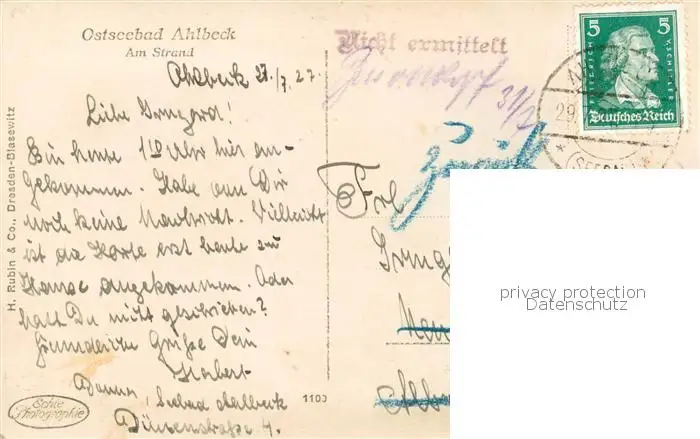 Ostseebad Ahlbeck
Am Strand
Ahlbeck 27/7.27.
Liebe Irmgard!
Bin heute 10 Uhr hier an-
gekommen. Habe von Dir
noch keine Nachricht. Vielleicht
ist die Karte erst heute zu
Hause angekommen. Oder
hast Du nicht geschrieben?
Grüße Dein
Herbert
Seebad Ahlbeck
Dünenstraße 4.
H. Rubin & Co., Dresden-Blasewitz
Echte
Photographie
1100
Nicht ermittelt
31/7
Zurück
5 5
FRIEDRICH V SCHILLER
Deutsches Reich
29
Frl
Irmg
privacy protection
Datenschutz